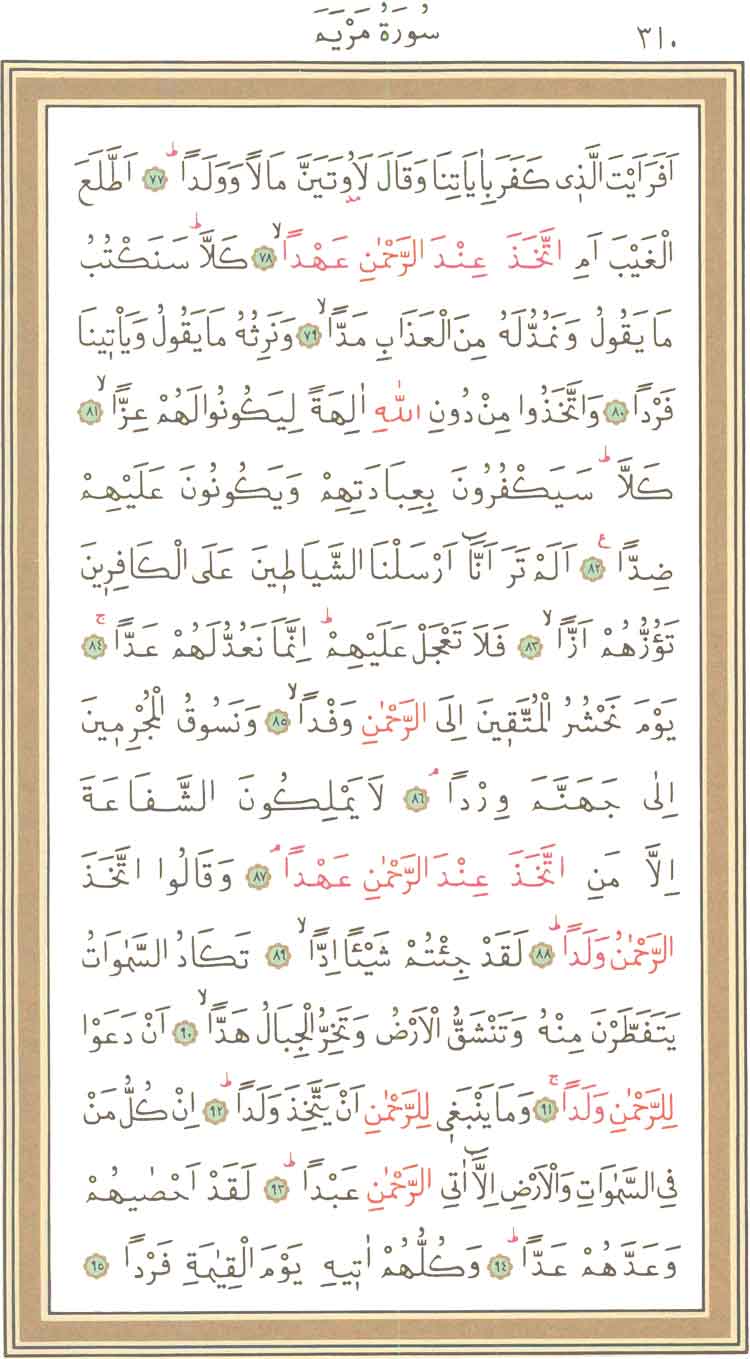 سُورَةُ مَرْيَمَ ٣١٠
اَفَرَاَيْتَ الَّذ۪ي كَفَرَ بِاٰيَاتِنَا وَقَالَ لَاُو۫تَيَنَّ مَالًا وَوَلَدًاۜ ﴿٧٧﴾ اَطَّلَعَ
الْغَيْبَ اَمِ اتَّخَذَ عِنْدَ الرَّحْمٰنِ عَهْدًاۙ ﴿٧٨﴾ كَلَّاۜ سَنَكْتُبُ
مَا يَقُولُ وَنَمُدُّ لَهُ مِنَ الْعَذَابِ مَدًّاۙ ﴿٧٩﴾ وَنَرِثُهُ مَا يَقُولُ وَيَأْت۪ينَا
فَرْدًا ﴿٨٠﴾ وَاتَّخَذُوا مِنْ دُونِ اللّٰهِ اٰلِهَةً لِيَكُونُوا لَهُمْ عِزًّاۙ ﴿٨١﴾
كَلَّاۜ سَيَكْفُرُونَ بِعِبَادَتِهِمْ وَيَكُونُونَ عَلَيْهِمْ
ضِدًّا۟ ﴿٨٢﴾ اَلَمْ تَرَ اَنَّٓا اَرْسَلْنَا الشَّيَاط۪ينَ عَلَى الْكَافِر۪ينَ
تَؤُزُّهُمْ اَزًّاۙ ﴿٨٣﴾ فَلَا تَعْجَلْ عَلَيْهِمْۜ اِنَّمَا نَعُدُّ لَهُمْ عَدًّاۚ ﴿٨٤﴾
يَوْمَ نَحْشُرُ الْمُتَّق۪ينَ اِلَى الرَّحْمٰنِ وَفْدًاۙ ﴿٨٥﴾ وَنَسُوقُ الْمُجْرِم۪ينَ
اِلٰى جَهَنَّمَ وِرْدًاۢ ﴿٨٦﴾ لَا يَمْلِكُونَ الشَّفَاعَةَ
اِلَّا مَنِ اتَّخَذَ عِنْدَ الرَّحْمٰنِ عَهْدًاۢ ﴿٨٧﴾ وَقَالُوا اتَّخَذَ
الرَّحْمٰنُ وَلَدًاۜ ﴿٨٨﴾ لَقَدْ جِئْتُمْ شَيْـًٔا اِدًّاۙ ﴿٨٩﴾ تَكَادُ السَّمٰوَاتُ
يَتَفَطَّرْنَ مِنْهُ وَتَنْشَقُّ الْاَرْضُ وَتَخِرُّ الْجِبَالُ هَدًّاۙ ﴿٩٠﴾ اَنْ دَعَوْا
لِلرَّحْمٰنِ وَلَدًاۚ ﴿٩١﴾ وَمَا يَنْبَغ۪ي لِلرَّحْمٰنِ اَنْ يَتَّخِذَ وَلَدًاۜ ﴿٩٢﴾ اِنْ كُلُّ مَنْ
فِي السَّمٰوَاتِ وَالْاَرْضِ اِلَّٓا اٰتِي الرَّحْمٰنِ عَبْدًاۜ ﴿٩٣﴾ لَقَدْ اَحْصٰيهُمْ
وَعَدَّهُمْ عَدًّاۜ ﴿٩٤﴾ وَكُلُّهُمْ اٰت۪يهِ يَوْمَ الْقِيٰمَةِ فَرْدًا ﴿٩٥﴾